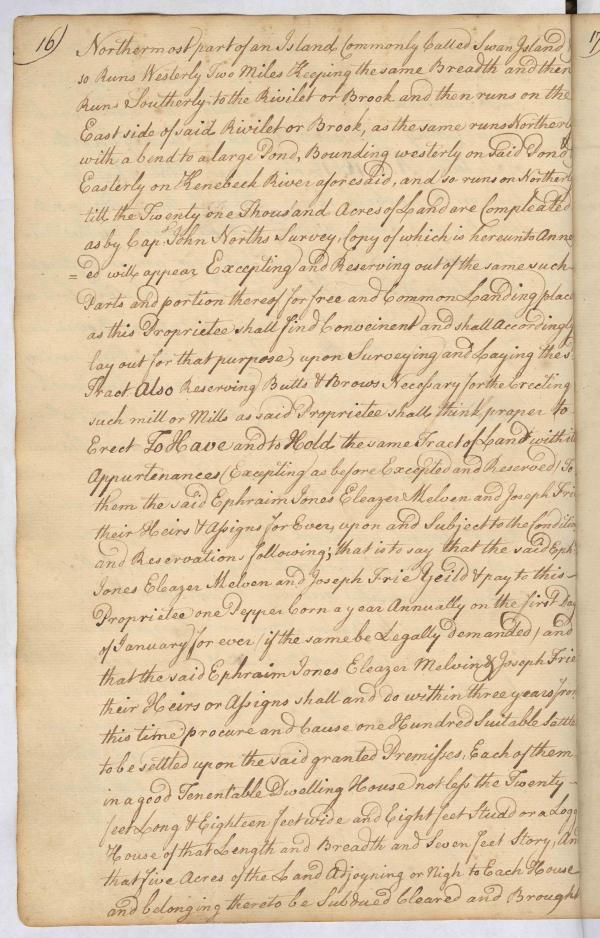 16)
Northermost part of an Island Commonly Called Swan Island
so Runs Westerly Two Miles Keeping the same Breadth and then
Runs Southerly to the Rivilet or Brook and then runs on the
East side of said Rivilet or Brook, as the same runs Northerly
with a bend to a large Pond, Bounding westerly on said Pond &
Easterly on Kenebeck River aforesaid, and so runs on Northerly
till the Twenty one Thousand Acres of Land are Compleated
as by Capt. John Norths Survey, Copy of which is hereunto Anne
=ed will appear Excepting and Reserving out of the same such
Parts and portion thereof for free and Common Landing place
as this Proprietee shall find Conveinent and shall Accordingly
lay out for that purpose, upon Surveying and Laying the s
Tract Also Reserving Butts & Brows Necessary for the Erecting
such mill or Mills as said Proprietee shall think proper to
Erect To Have and to Hold the same Tract of Land with it
Appurtenances (Excepting as before Excepted and Reserved) To
them the said Ephraim Jones Eleazer Melven and Joseph Frie
their Heirs & Assigns for Ever, upon and Subject to the Condition
and Reservations following; that is to say that the said Eph
Jones Eleazer Melven and Joseph Frie Yeild & pay to this
Proprietee one Pepper Corn a year Annually on the first Day
of January for ever (if the same be Legally Demanded) and
that the said Ephraim Jones Eleazer Melvin & Joseph Frie
their Heirs or Assigns shall and do within three years from
this time procure and Cause one Hundred Suitable Settle
to be settled upon the said granted Premisses, Each of them
in a good Tenentable Dwelling House not less the Twenty
feet Long & Eighteen feet wide and Eight feet Studd or a Logg
House of that Length and Breadth and Seven feet Story, And
that five Acres of the Land Adjoyning or Nigh to Each House
and belonging thereto be Subdued Cleared and Brought
17